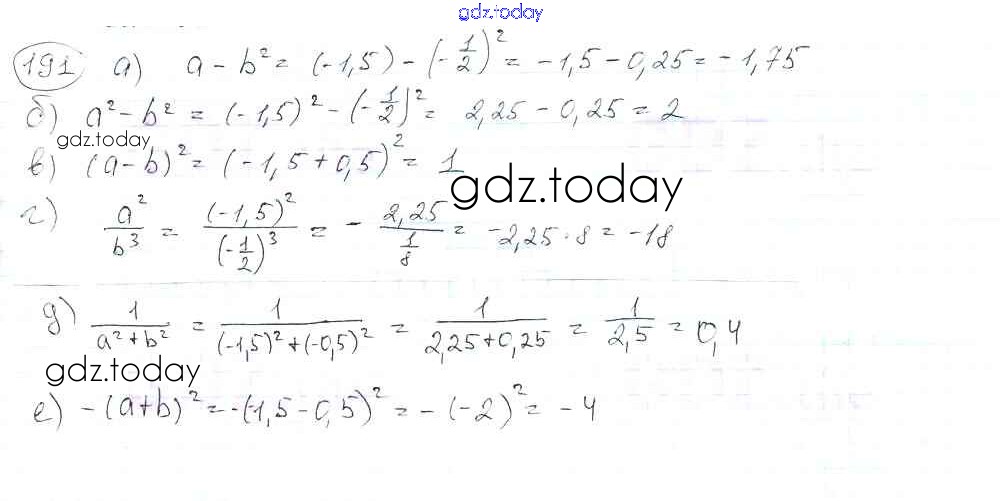 gdz.today
191 а) a - b² = (-1,5) - (-1/2)² = -1,5 - 0,25 = -1,75
б) a² - b² = (-1,5)² - (-1/2)² = 2,25 - 0,25 = 2
gdz.today
в) (a-b)² = (-1,5+0,5)² = 1
gdz.today
г) a²/b³ = (-1,5)²/(-1/2)³ = - 2,25/(1/8) = -2,25 · 8 = -18
д) 1/(a²+b²) = 1/((-1,5)²+(-0,5)²) = 1/(2,25+0,25) = 1/2,5 = 0,4
gdz.today
е) -(a+b)² = -(-1,5-0,5)² = -(-2)² = -4